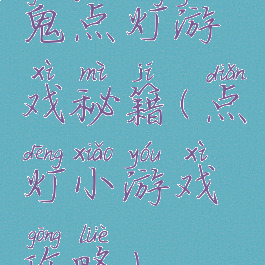 鬼点灯游
xì mì jí diǎn
戏秘籍(点
dēng xiǎo yóu xì
灯小游戏
gōng lüè
攻略)